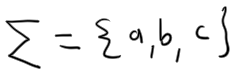 Σ = {a, b, c}